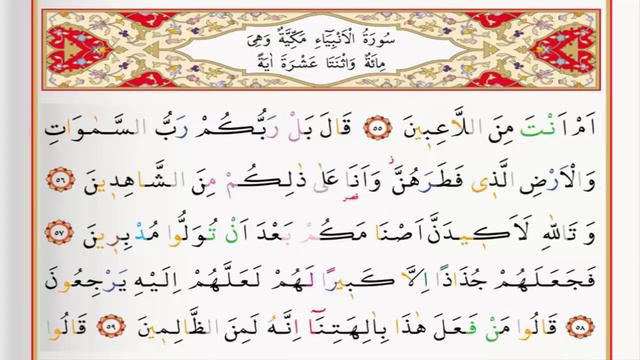 سُورَةُ الْاَنْبِيَٓاءِ مَكِّيَّةٌ وَهِيَ
مِائَةٌ وَاثْنَتَا عَشْرَةَ اٰيَةً
اَمْ اَنْتَ مِنَ اللَّاعِب۪ينَ ﴿٥٥﴾ قَالَ بَلْ رَبُّكُمْ رَبُّ السَّمٰوَاتِ
وَالْاَرْضِ الَّذ۪ي فَطَرَهُنَّۘ وَاَنَا۬ عَلٰى ذٰلِكُمْ مِنَ الشَّاهِد۪ينَ ﴿٥٦﴾
قصر
وَتَاللّٰهِ لَاَك۪يدَنَّ اَصْنَامَكُمْ بَعْدَ اَنْ تُوَلُّوا مُدْبِر۪ينَ ﴿٥٧﴾
فَجَعَلَهُمْ جُذَاذًا اِلَّا كَب۪يرًا لَهُمْ لَعَلَّهُمْ اِلَيْهِ يَرْجِعُونَ
﴿٥٨﴾ قَالُوا مَنْ فَعَلَ هٰذَا بِاٰلِهَتِنَٓا اِنَّهُ لَمِنَ الظَّالِم۪ينَ ﴿٥٩﴾ قَالُوا